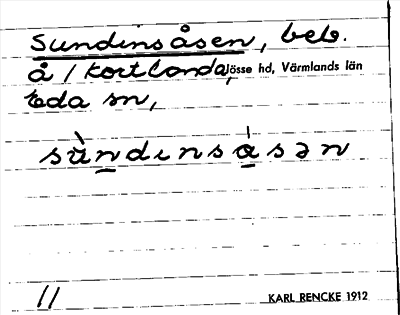 Sundinsåsen, beb.
å / Köstlanda, Jösse hd, Värmlands län
Eda sn,
sùndinsåsən
11 KARL RENCKE 1912